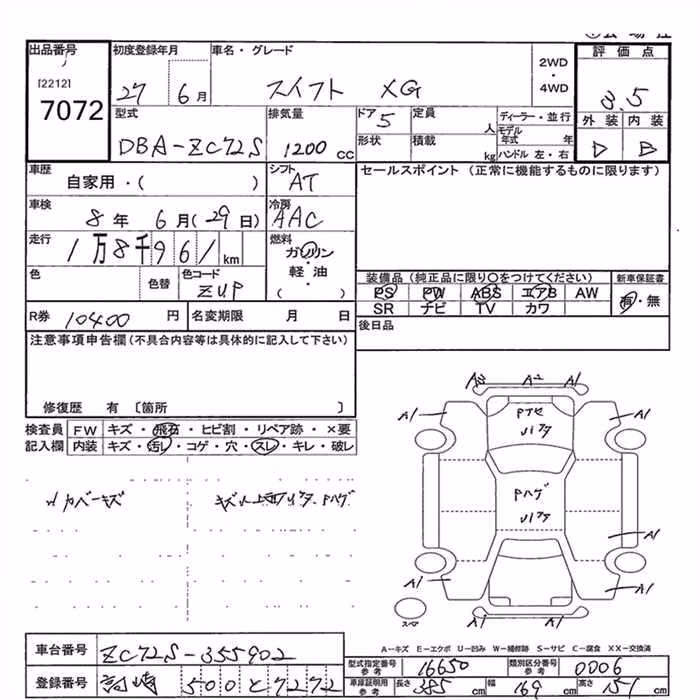 出品番号 初度登録年月 車名・グレード 評価点
[2212] 2WD
7072 27 6月 スイフト XG ・
4WD
3.5
型式 排気量 ドア 定員 ディーラー・並行
5 人 モデル年式 年 外装 内装
DBA-ZC72S 1200 CC 形状 積載 kg ハンドル 左・右 D B
車歴 シフト セールスポイント (正常に機能するものに限ります)
自家用・( ) AT
車検 冷房
8年 6月(29日) AAC
走行 燃料
1万8千961 km ガソリン
色 色替 色コード ・
軽油
ZUP ・
( )
装備品 (純正品に限り○をつけてください) 新車保証書
PS PW ABS エアB AW 有・無
SR ナビ TV カワ
R券 10400 円 名変期限 月 日 後日品
注意事項申告欄(不具合内容等は具体的に記入して下さい)
修復歴 有 〔箇所 〕
検査員 FW キズ・飛石・ヒビ割・リペア跡・×要
記入欄 内装 キズ・汚レ・コゲ・穴・スレ・キレ・破レ
カバーキズ
A3 A2 A1
A1 A1
Pハゲ
A1
A1 A1
A1 A1
スペア
A-キズ E-エクボ U-凹み W-補修跡 S-サビ C-腐食 XX-交換済
車台番号 ZC72S-355902
型式指定番号 参考 16650 類別区分番号 参考 0006
登録番号 高崎 500 と 7272
車庫証明用 参考 長さ 385 cm 幅 169 cm 高さ 151 cm